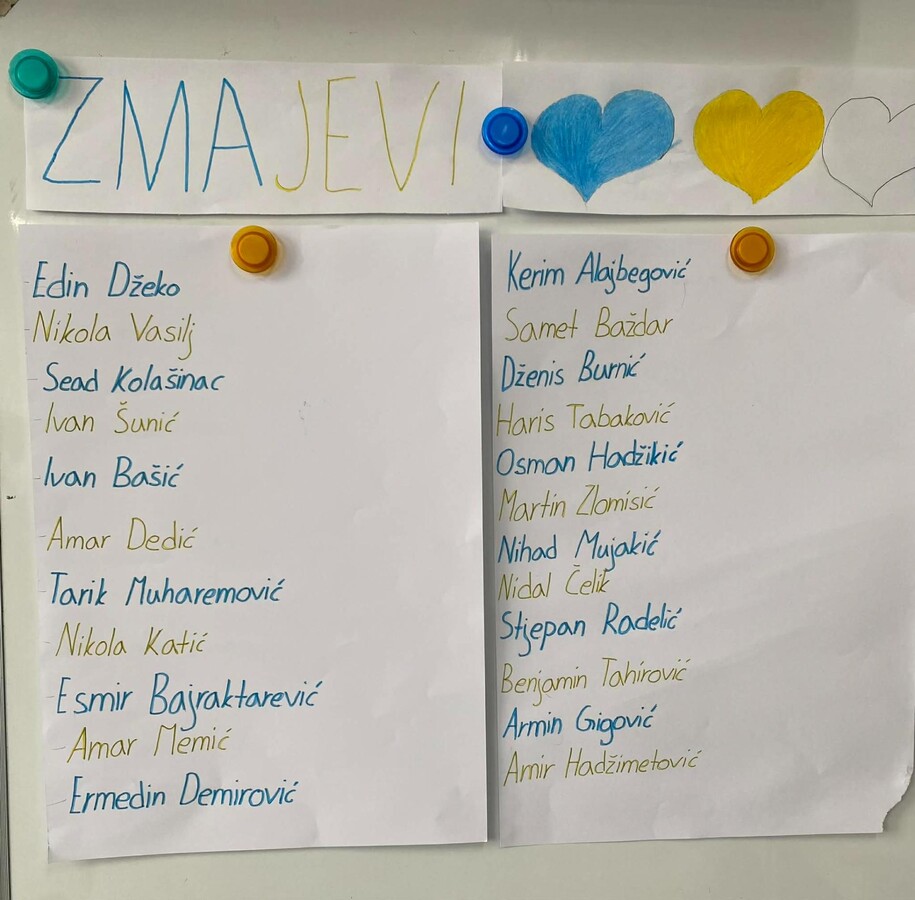 ZMAJEVI
Edin Džeko
Nikola Vasilj
Sead Kolašinac
Ivan Šunić
Ivan Bašić
Amar Dedić
Tarik Muharemović
Nikola Katić
Esmir Bajraktarević
Amar Memić
Ermedin Demirović
Kerim Alajbegović
Samet Baždar
Dženis Burnić
Haris Tabaković
Osman Hadžikić
Martin Zlomisić
Nihad Mujakić
Nidal Čelik
Stjepan Radelić
Benjamin Tahirović
Armin Gigović
Amir Hadžimetović